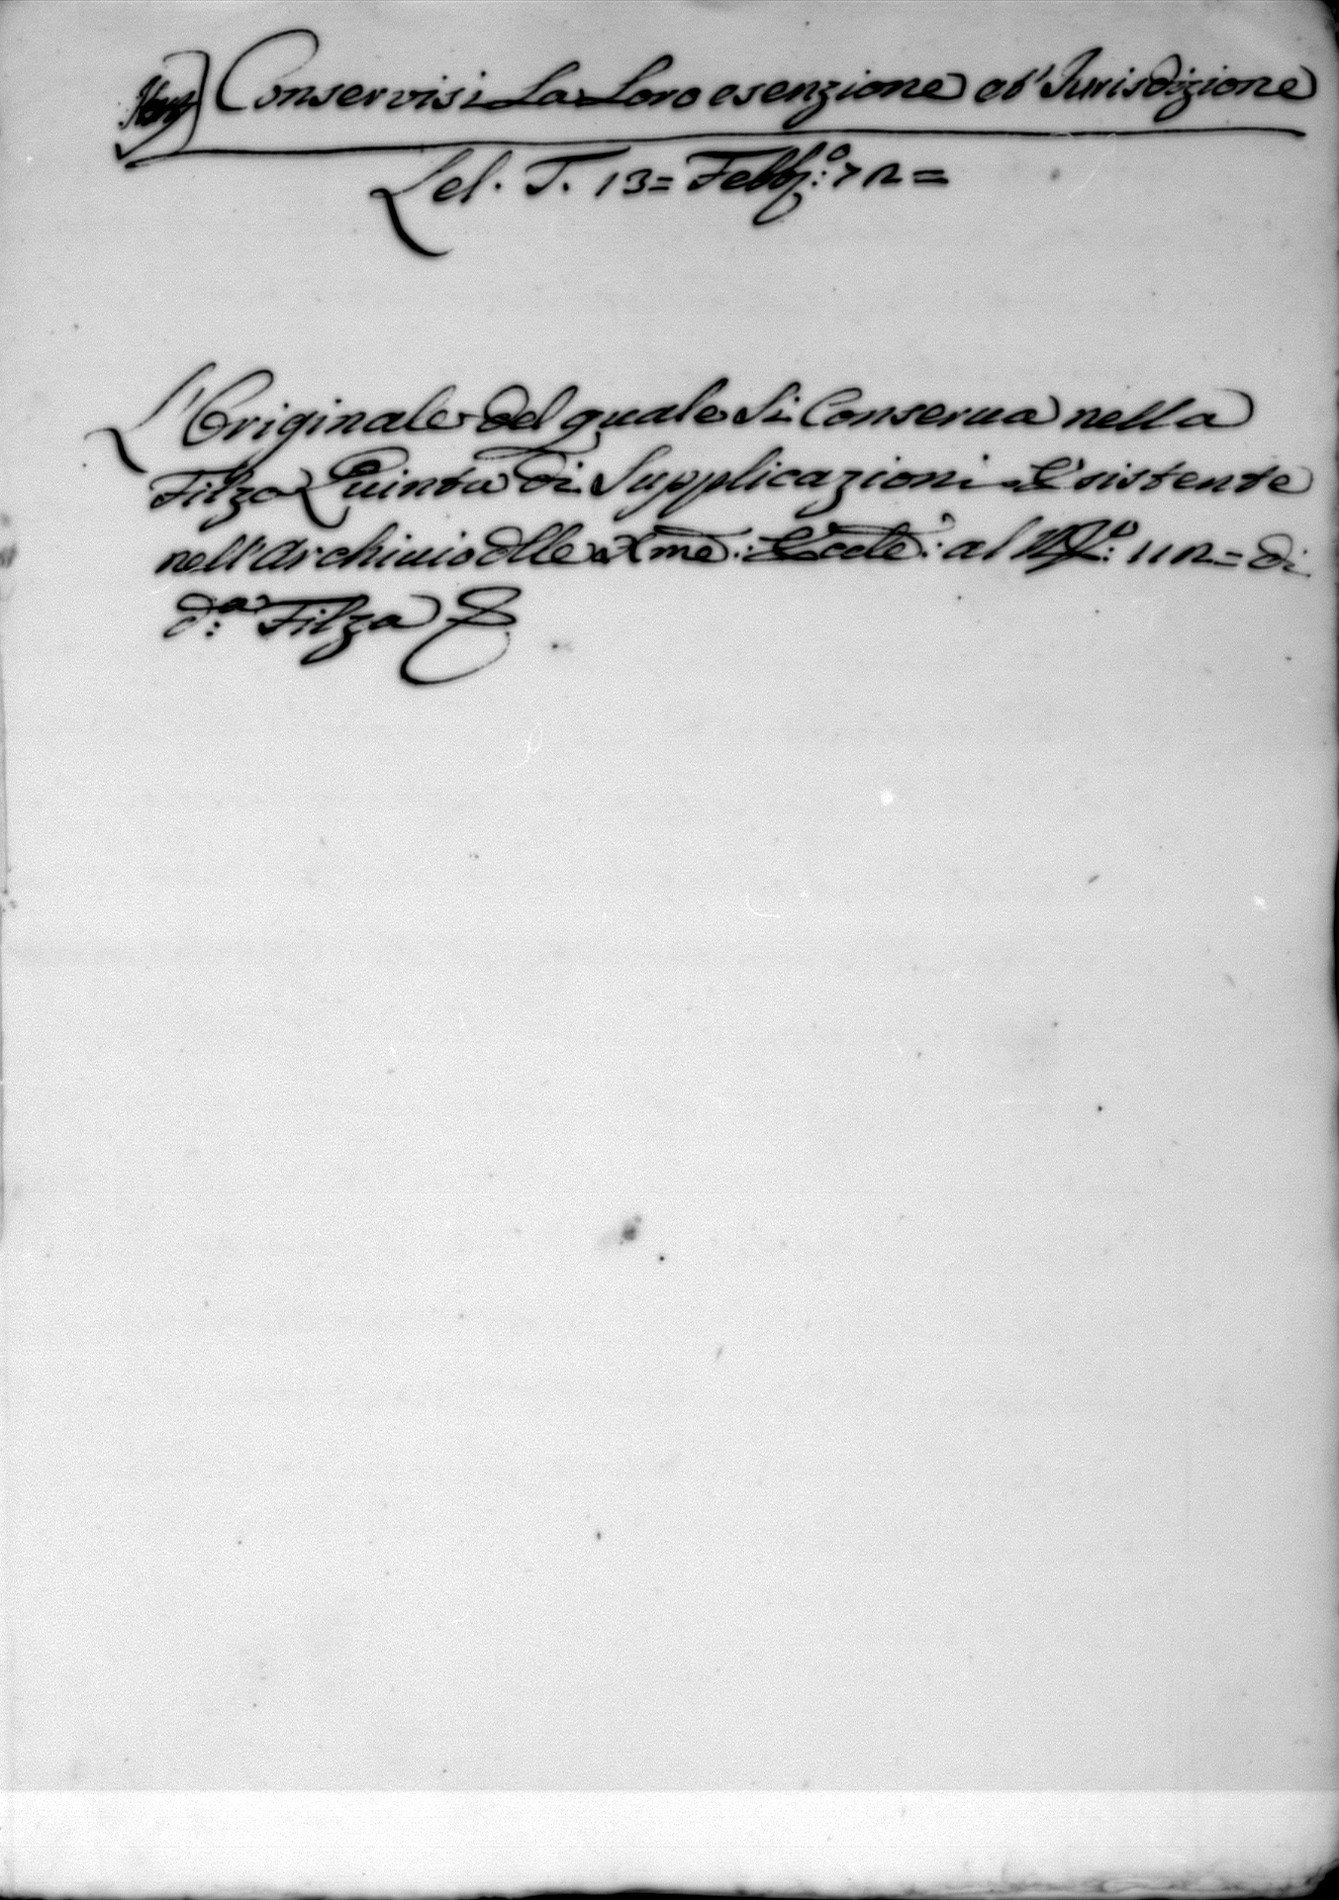 Conservisi La Loro esenzione et' Jurisdizione
Lel. T. 13= Febb.º: 72=
L'Originale del quale Si Conserua nella
Filza Quinta di Supplicazioni Esistente
nell'Archiuio dlle Xme: al N.º: 112= di
d:ª Filza